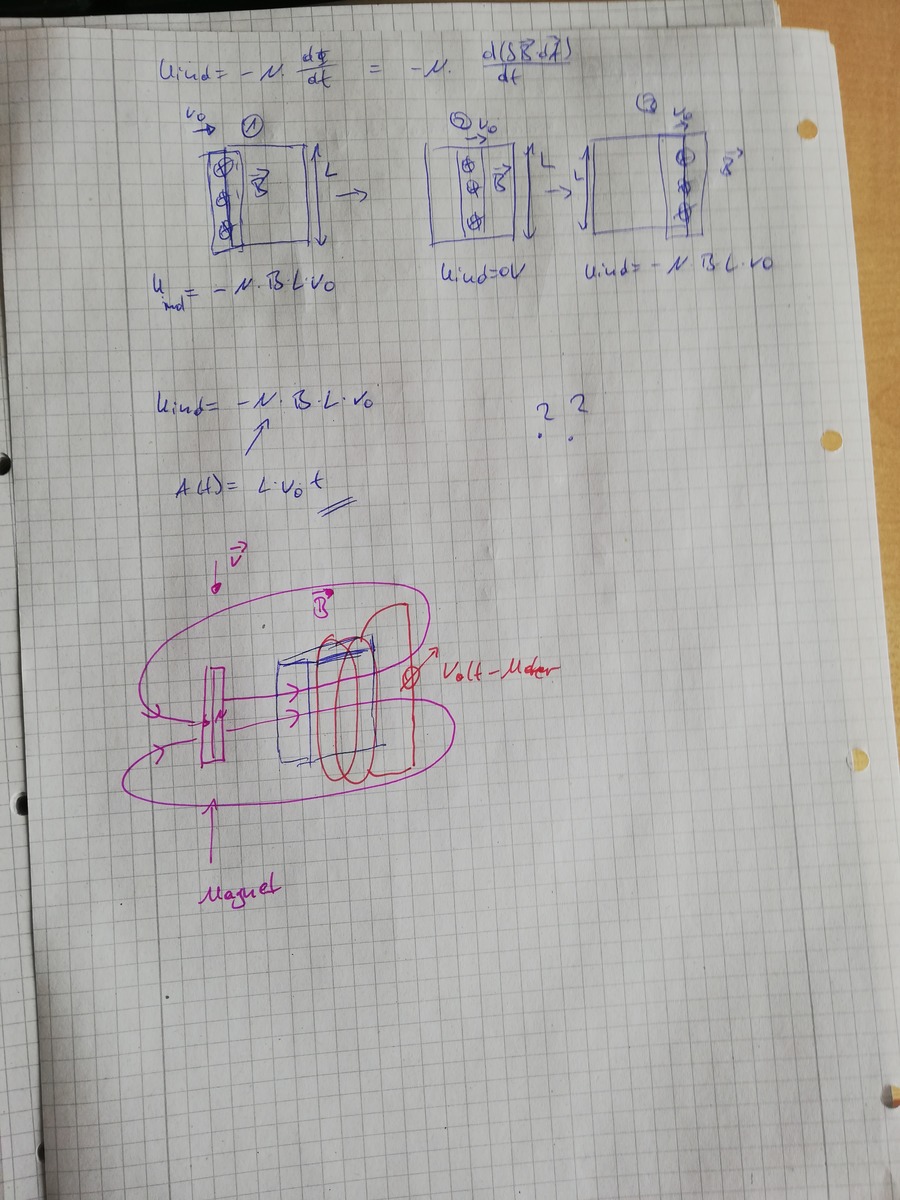 Uind = -N · dΦ/dt = -N · d(∫B⃗·dA⃗)/dt
v₀ → ① ② v₀ → ③ v₀ →
B⃗ L → B⃗ L → L B⃗
Uind = -N·B·L·v₀ Uind=0V Uind= -N·B·L·v₀
Uind= -N·B·L·v₀ ? ?
A(t)= L·v₀·t
v⃗
B⃗
Volt-Meter
N
Magnet